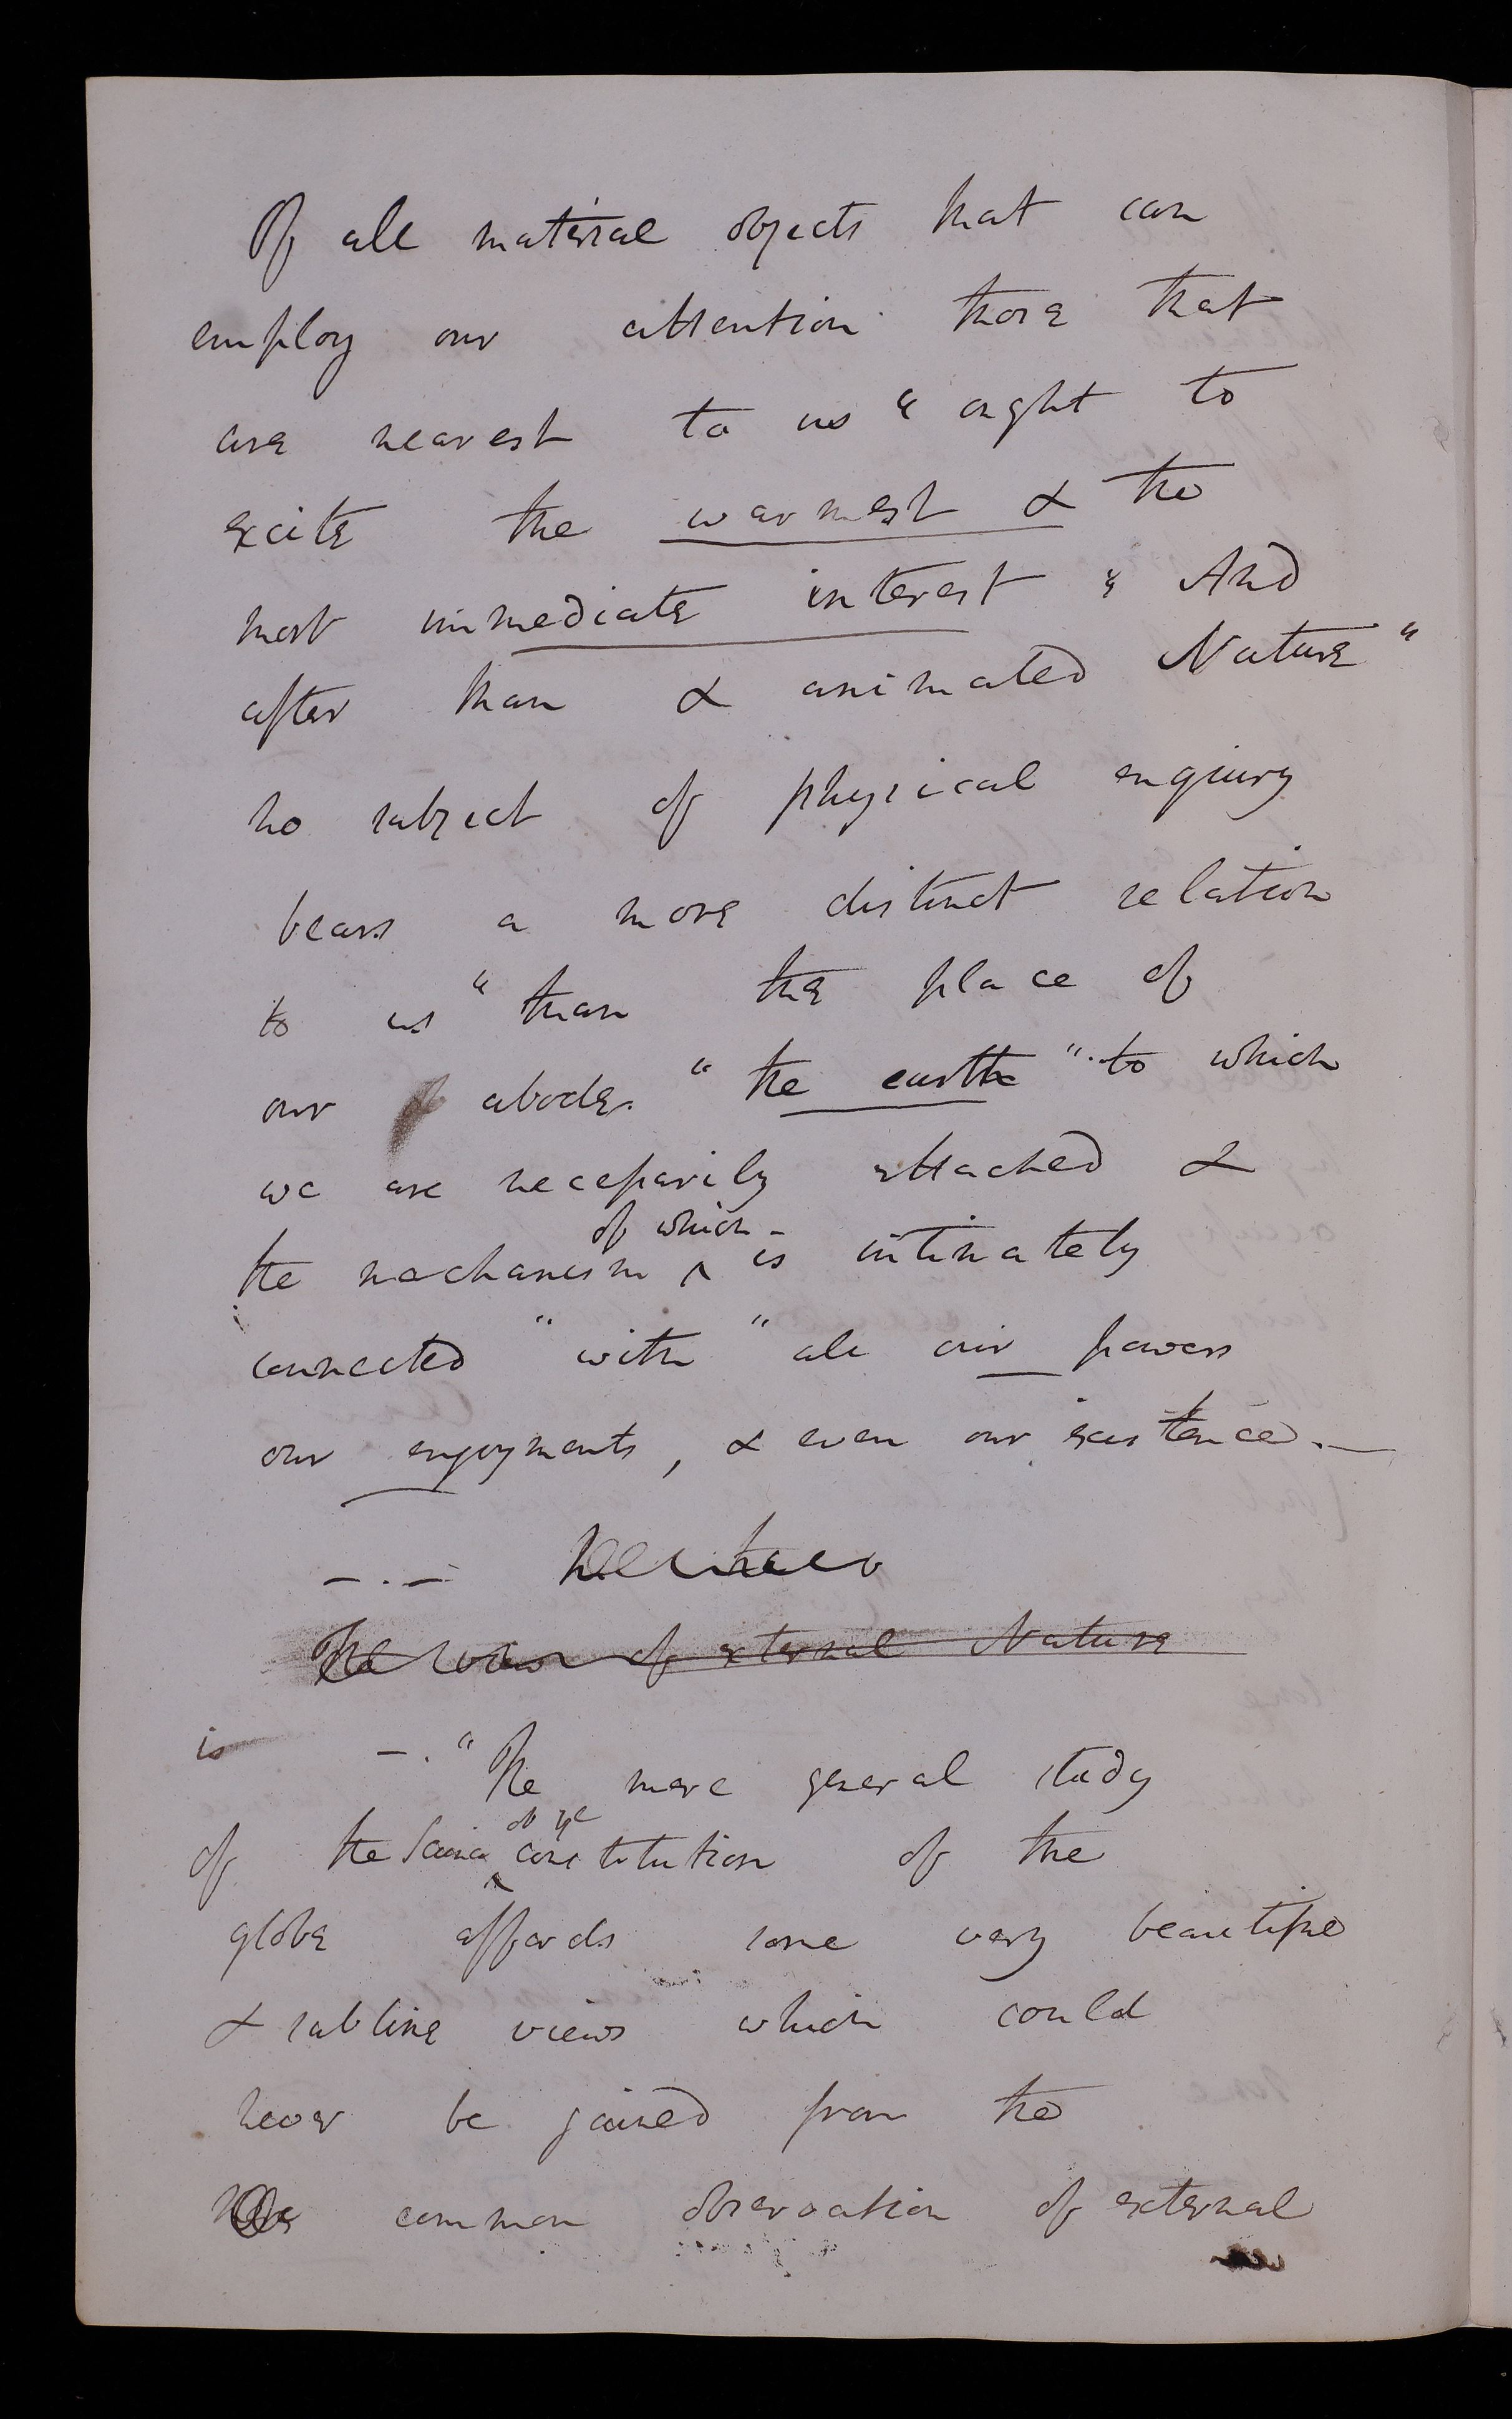 Of all material objects that can
employ our attention those that
are nearest to us " ought to
excite the warmest & the
most immediate interest " And
after Man & animated Nature "
no subject of physical enquiry
bears a more distinct relation
to us " than the place of
our abode. " the earth " to which
we are necessarily attached &
of which -
the mechanism ^ is intimately
connected " with " all our powers
our enjoyments, & even our existence. —
— . —
The view of external Nature
is — . " The mere general study
of ye
of the ^ constitution of the
globe affords some very beautiful
& sublime views which could
never be gained from the
common observation of external